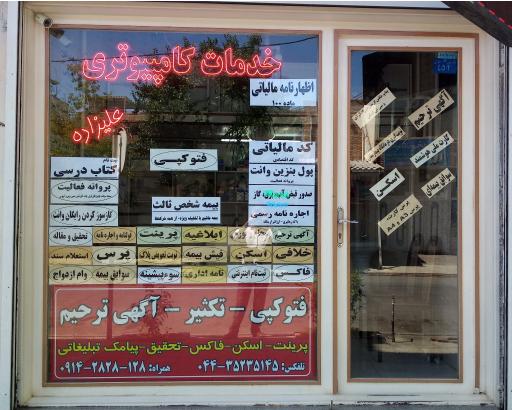 خدمات کامپیوتری
علیزاره
اظهارنامه مالیاتی
ماده ۱۰۰
کد مالیاتی
کد اقتصادی
پول بنزین وانت
پروانه فعالیت
ثبت نام
کتاب درسی
پروانه فعالیت
فتوکپی
بیمه شخص ثالث
صدور قبض آب، برق، گاز
اجاره نامه رسمی
گازسوز کردن رایگان وانت
آگهی ترحیم
ابلاغیه
پرینت
قولنامه و اجاره نامه
تحقیق و مقاله
خلافی
اسکن
قبض بیمه
نوبت تعویض پلاک
پرس
استعلام سند
فاکس
ثبت نام اینترنتی
نامه اداری
سوپیشینه
سوابق بیمه
وام ازدواج
فتوکپی – تکثیر – آگهی ترحیم
پرینت-اسکن-فاکس-تحقیق-پیامک تبلیغاتی
تلفکس: ۰۴۴-۳۵۲۳۵۱۴۵ همراه: ۰۹۱۴-۲۸۲۸-۱۲۸
آگهی ترحیم
کارت ملی هوشمند
اسکن